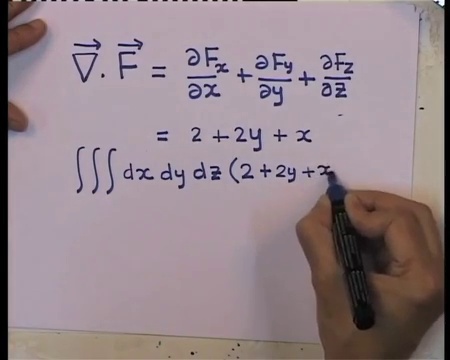 ∇⃗ . F⃗ = ∂Fx/∂x + ∂Fy/∂y + ∂Fz/∂z
= 2 + 2y + x
∫∫∫ dx dy dz (2 + 2y + x